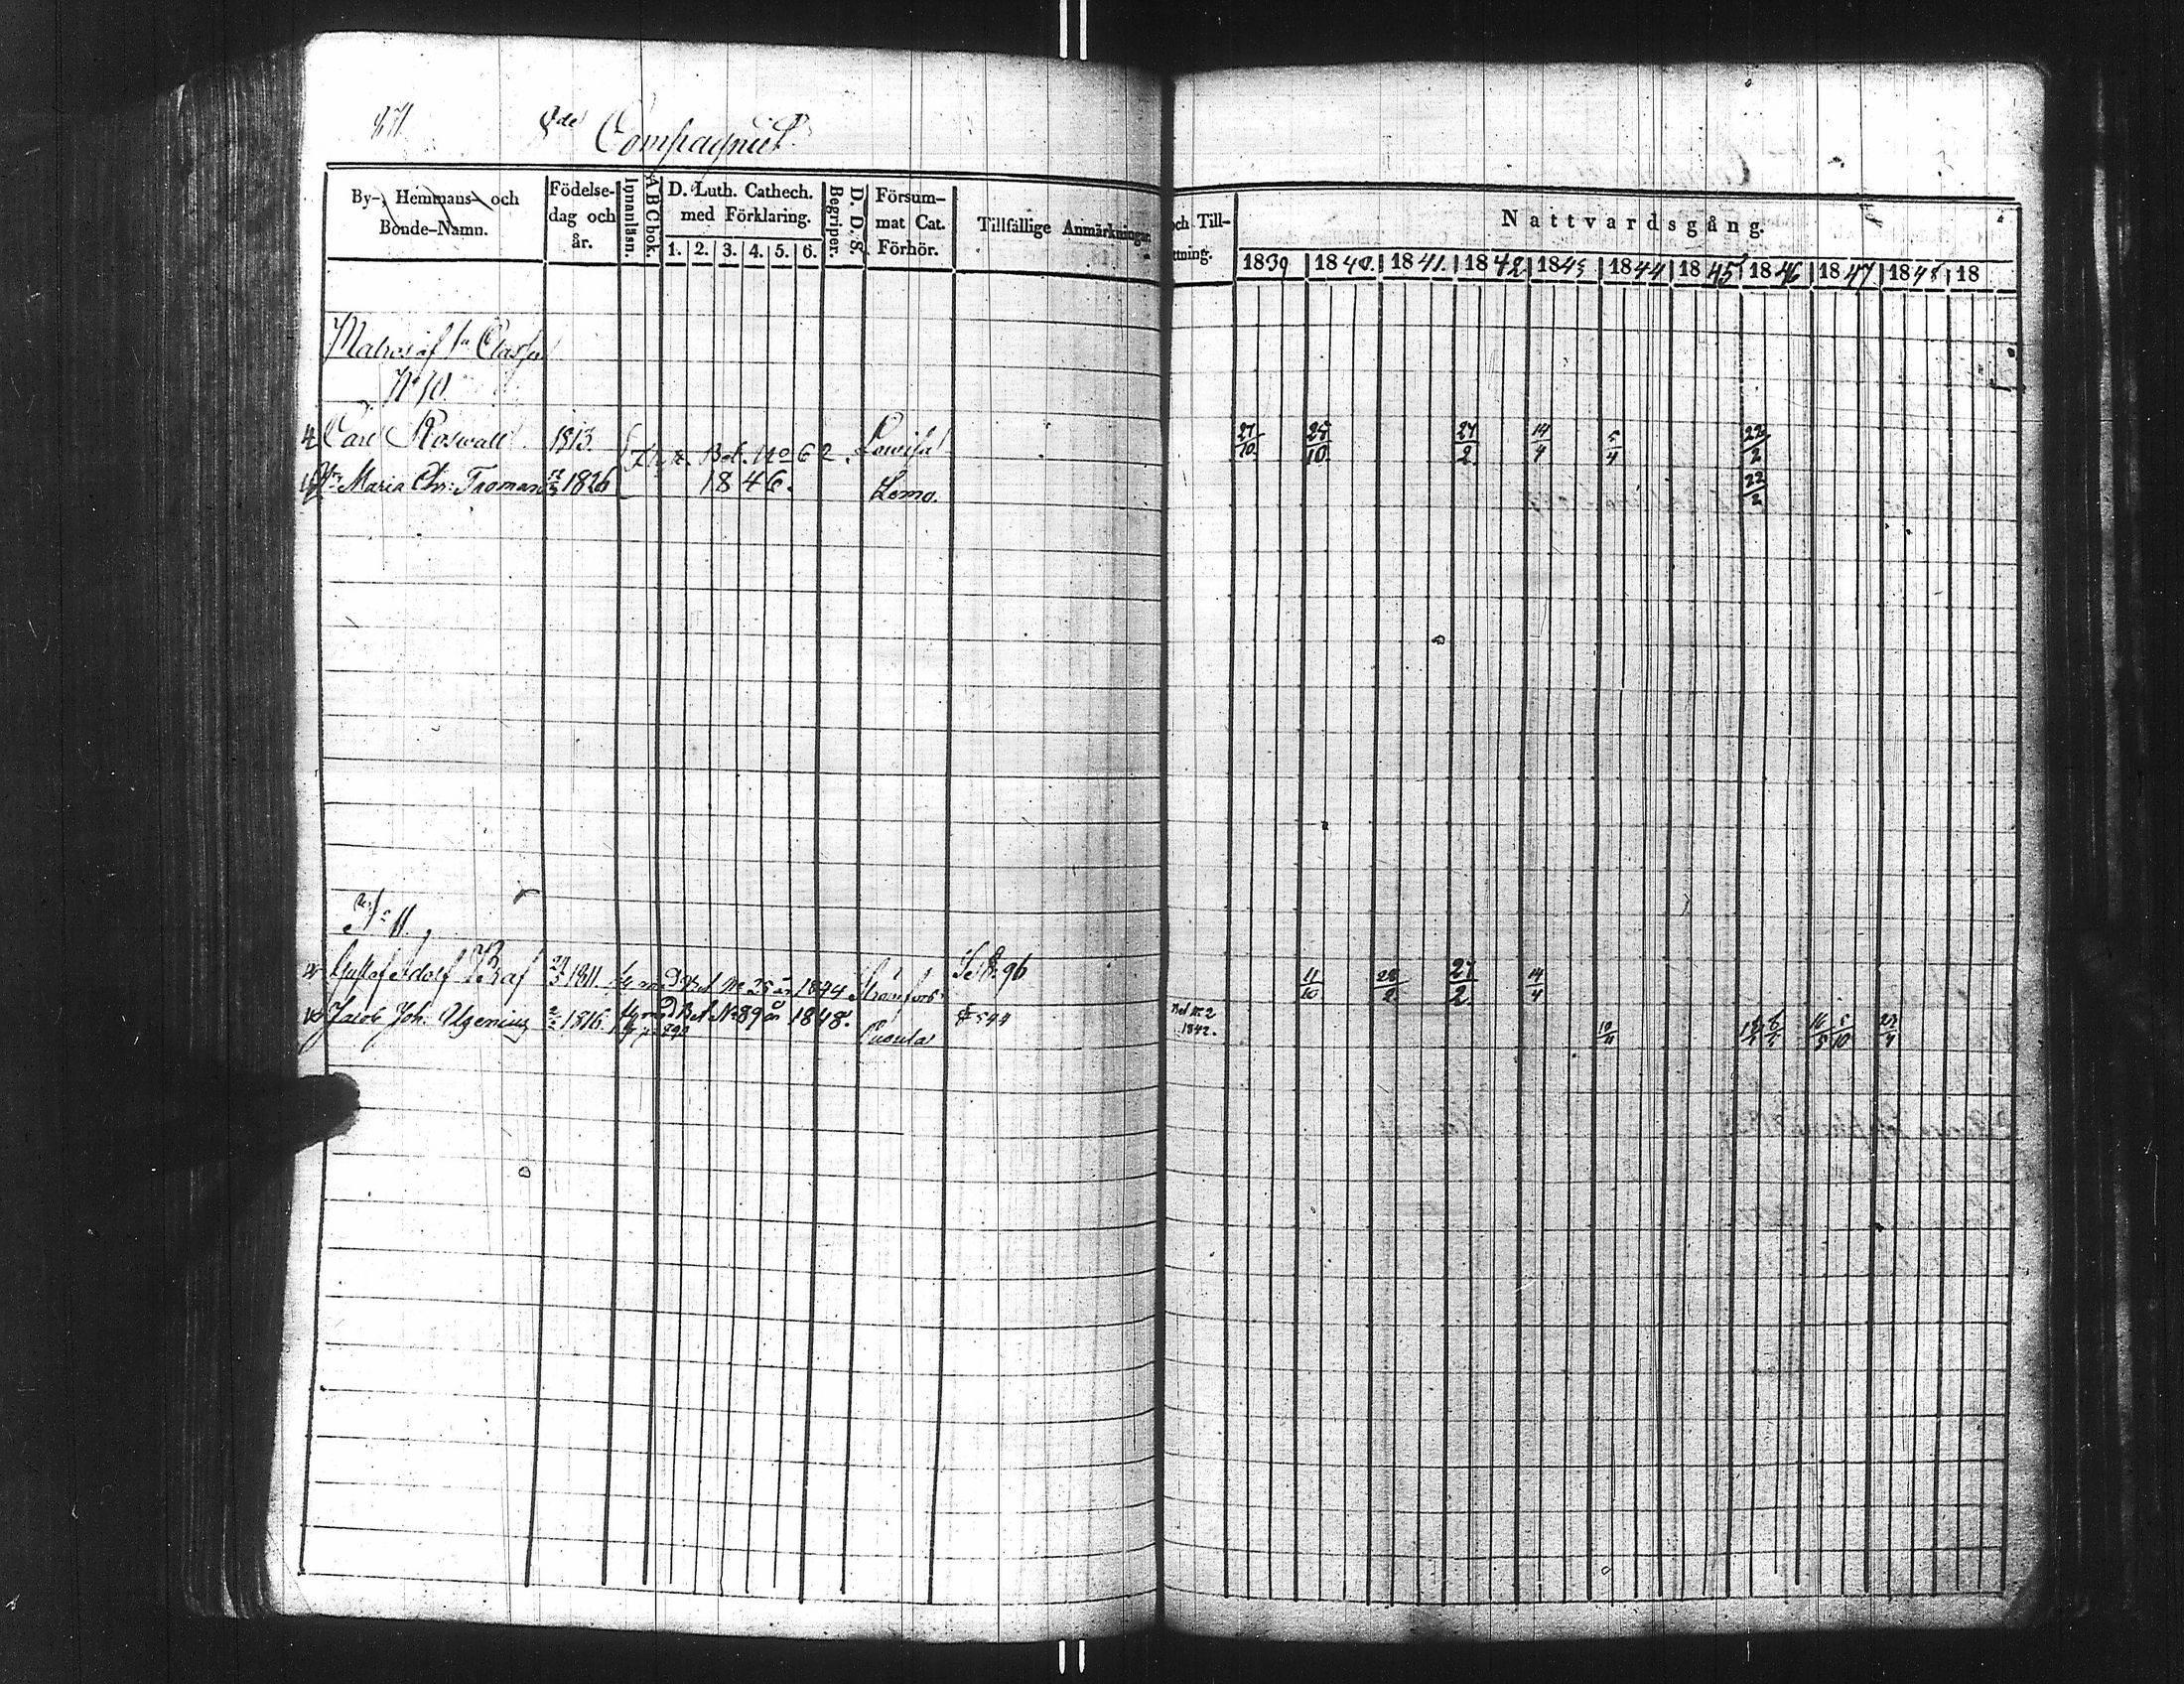 871. 2de Compagniet
By-, Hemmans- och Bonde-Namn.
Födelse-dag och år.
Innanläsn.
ABC bok.
D. Luth. Cathech. med Förklaring.
1. 2. 3. 4. 5. 6.
Begriper.
D. D. S.
Försum-mat Cat. Förhör.
Tillfällige Anmärkningar
och Till-
ttning.
Nattvardsgång.
1839 1840. 1841. 1842 1843 1844 1845 1846 1847 1848 18
Matros af 1a Classen
No 10.
Carl Roswall. 1813. Bet. No 62. Lovisa 27/10 25/10 27/2 14/4 5/4 22/2
Maria Chr: Froman 1826 1846. Lemo 22/2
No 11.
Gustaf Adolf Raf 1811. med Bet No 25 år 1844 Strömfors Se p. 96 11/10 28/2 27/2 14/4
Jacob Joh. Ugenius 1816. med Bet No 89 år 1848. p. 544 Bet No 2 1842. 16/5 5/10